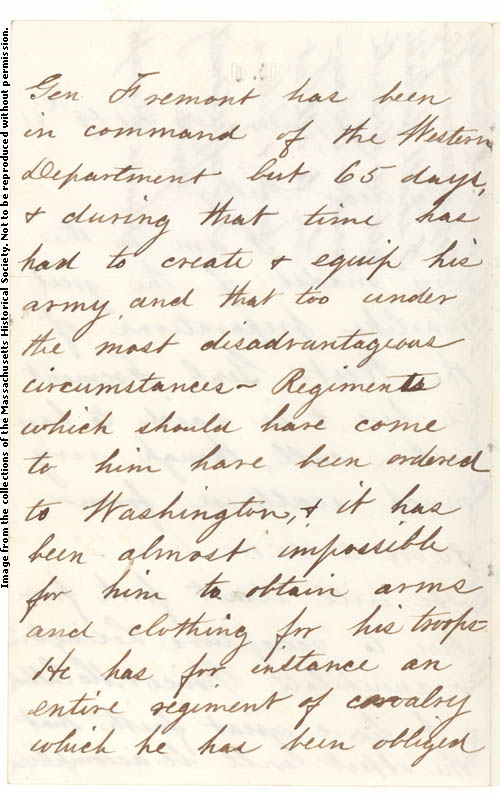 Gen Fremont has been
in command of the Western
Department but 65 days,
& during that time has
had to create & equip his
army, and that too under
the most disadvantageous
circumstances - Regiments
which should have come
to him have been ordered
to Washington, & it has
been almost impossible
for him to obtain arms
and clothing for his troops -
He has for instance an
entire regiment of cavalry
which he has been obliged
Image from the collections of the Massachusetts Historical Society. Not to be reproduced without permission.